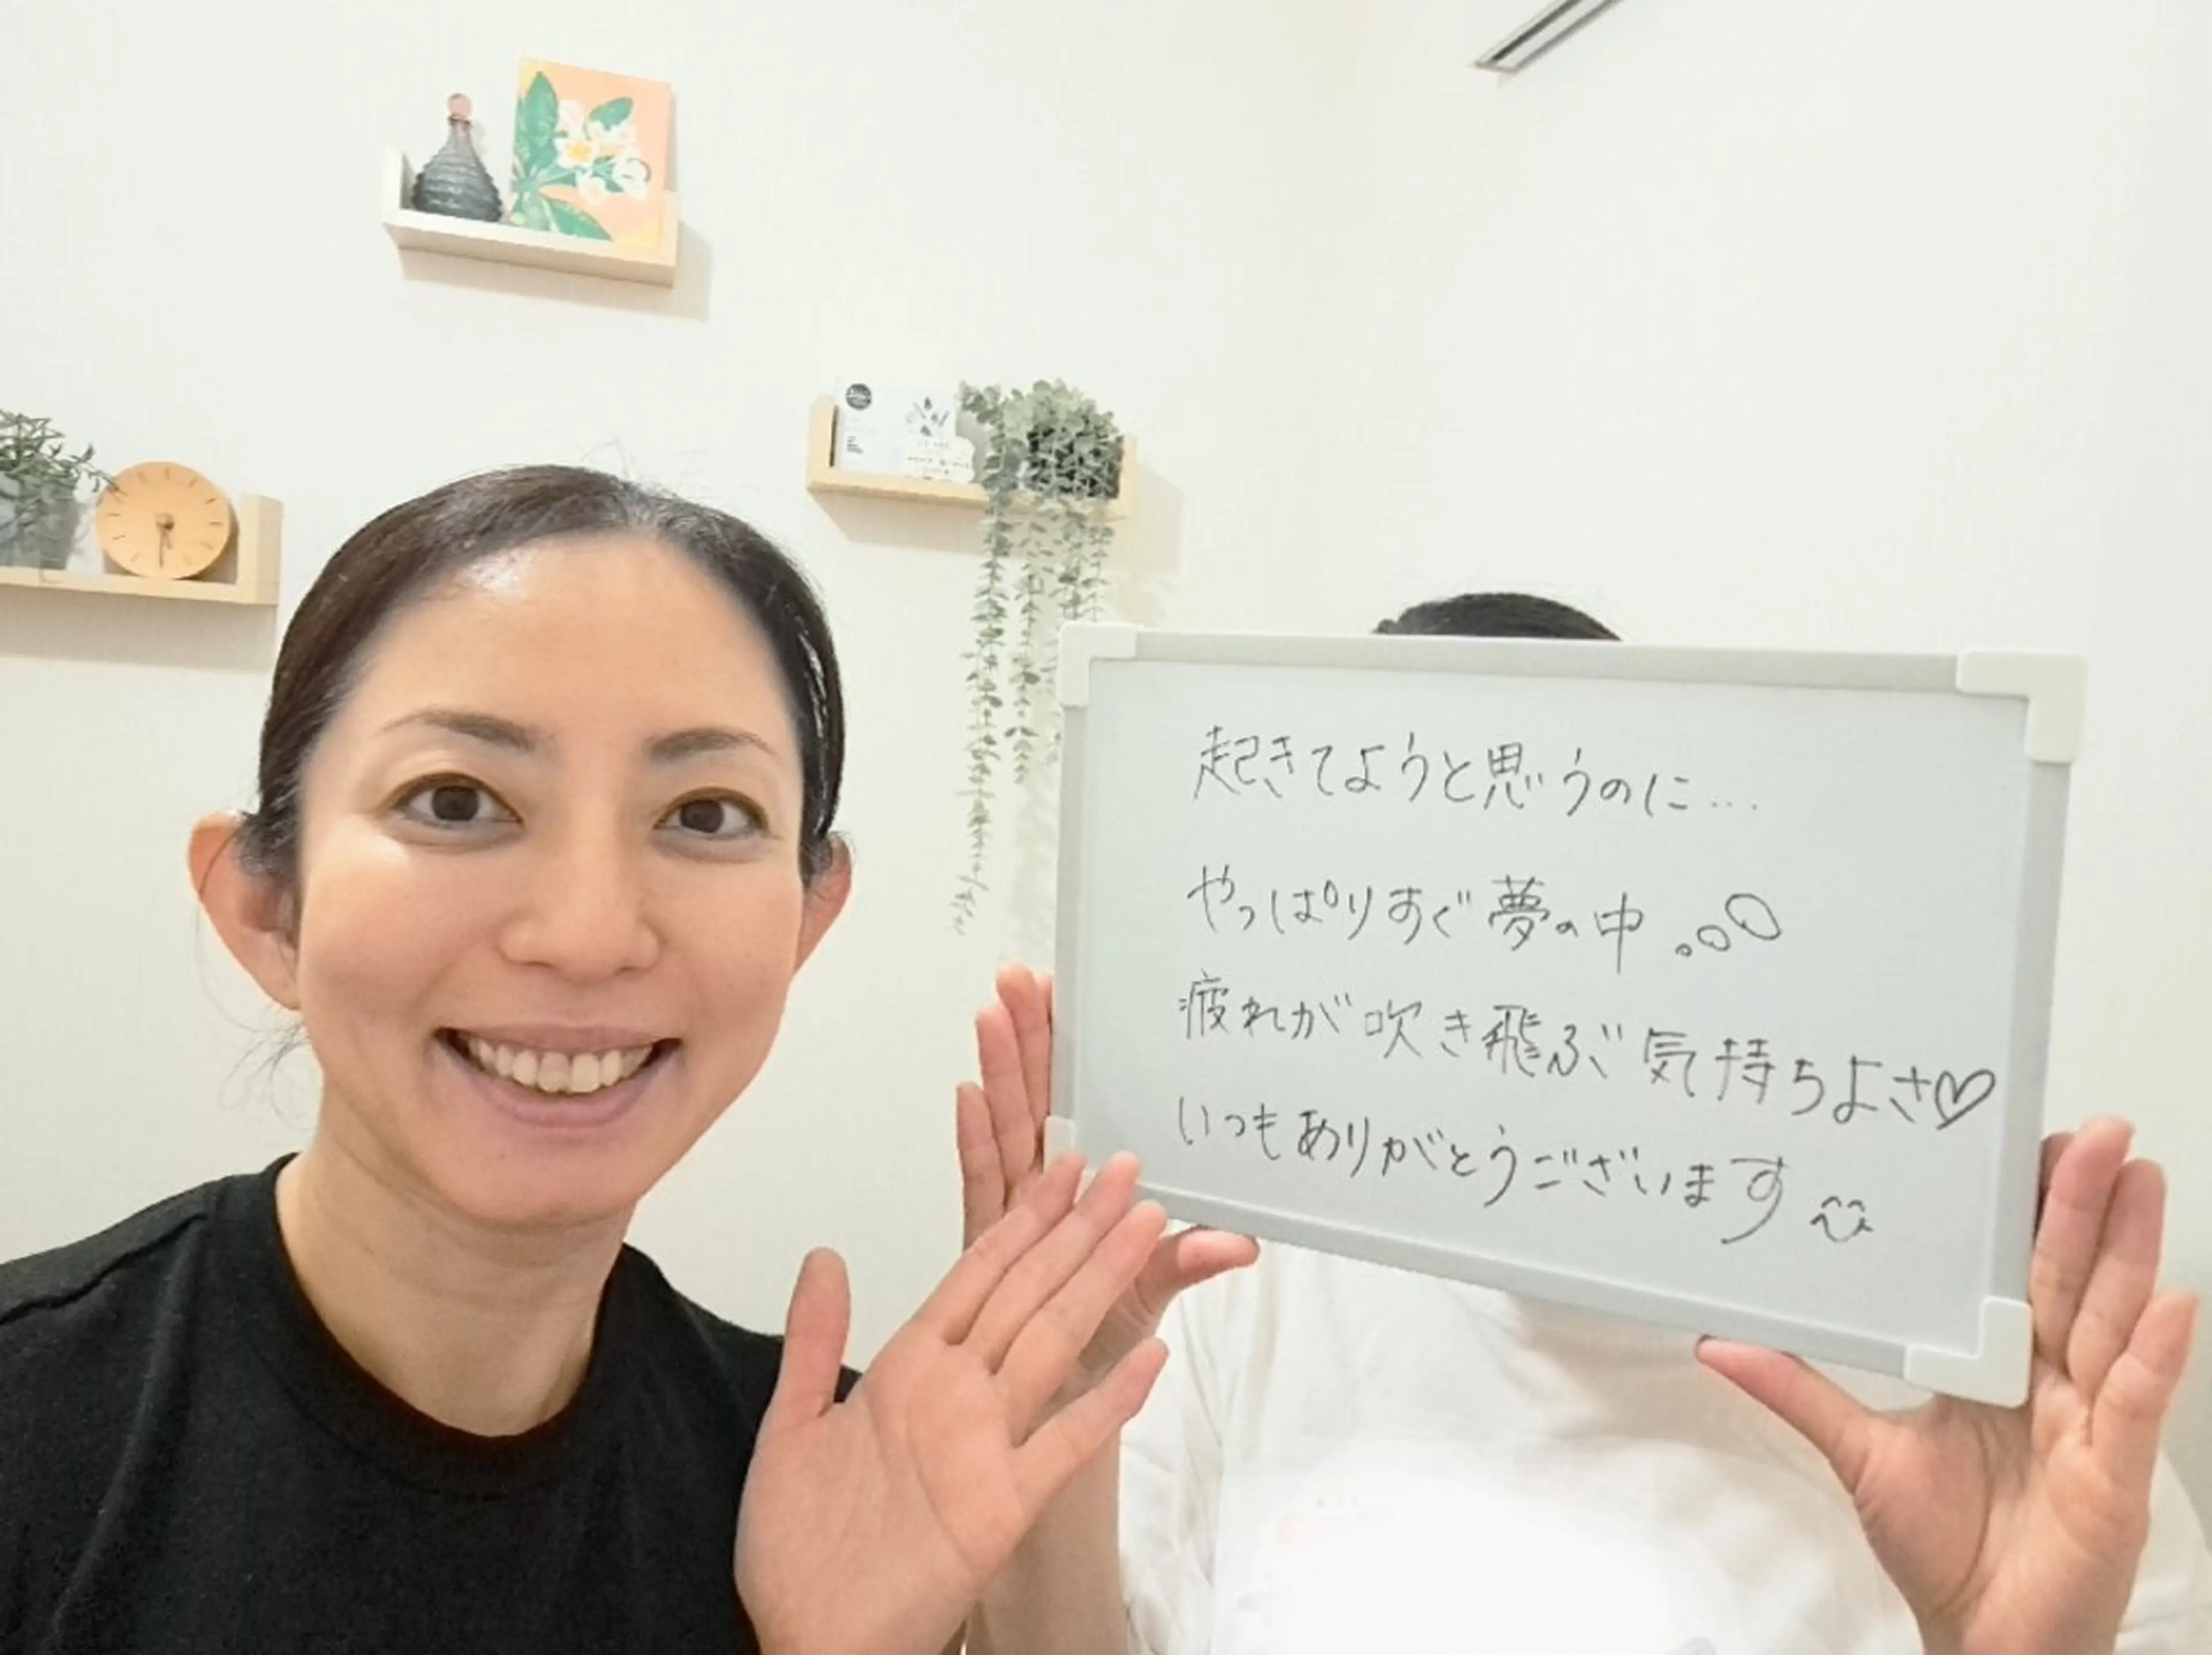 起きてようと思うのに...
やっぱりすぐ夢の中
疲れが吹き飛ぶ気持ちよさ♡
いつもありがとうございます